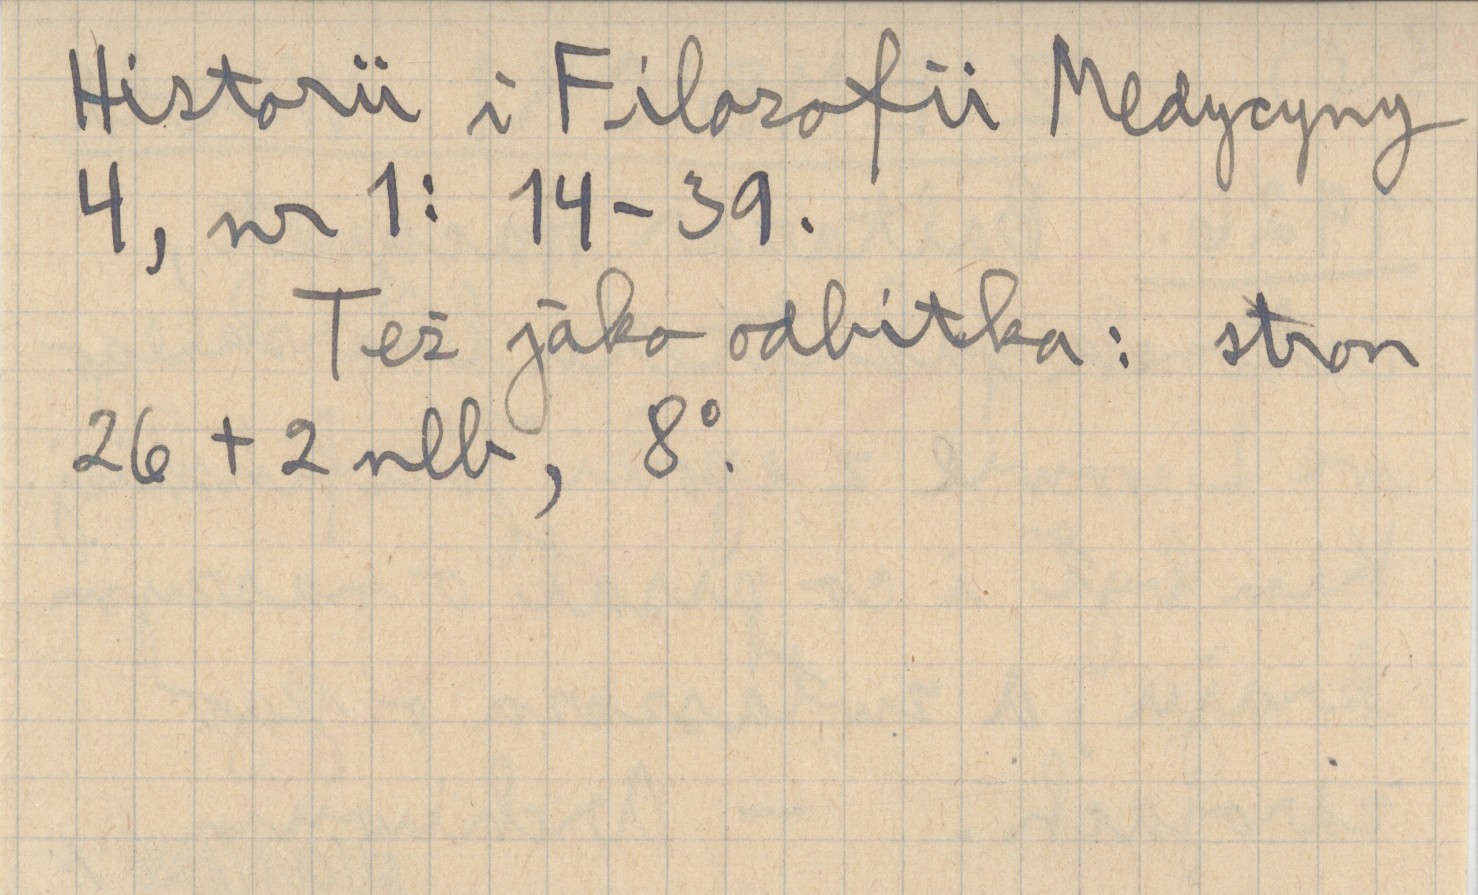 Historii i Filozofii Medycyny
4, nr 1: 14-39.
Też jako odbitka: stron
26 + 2 nlb, 8°.